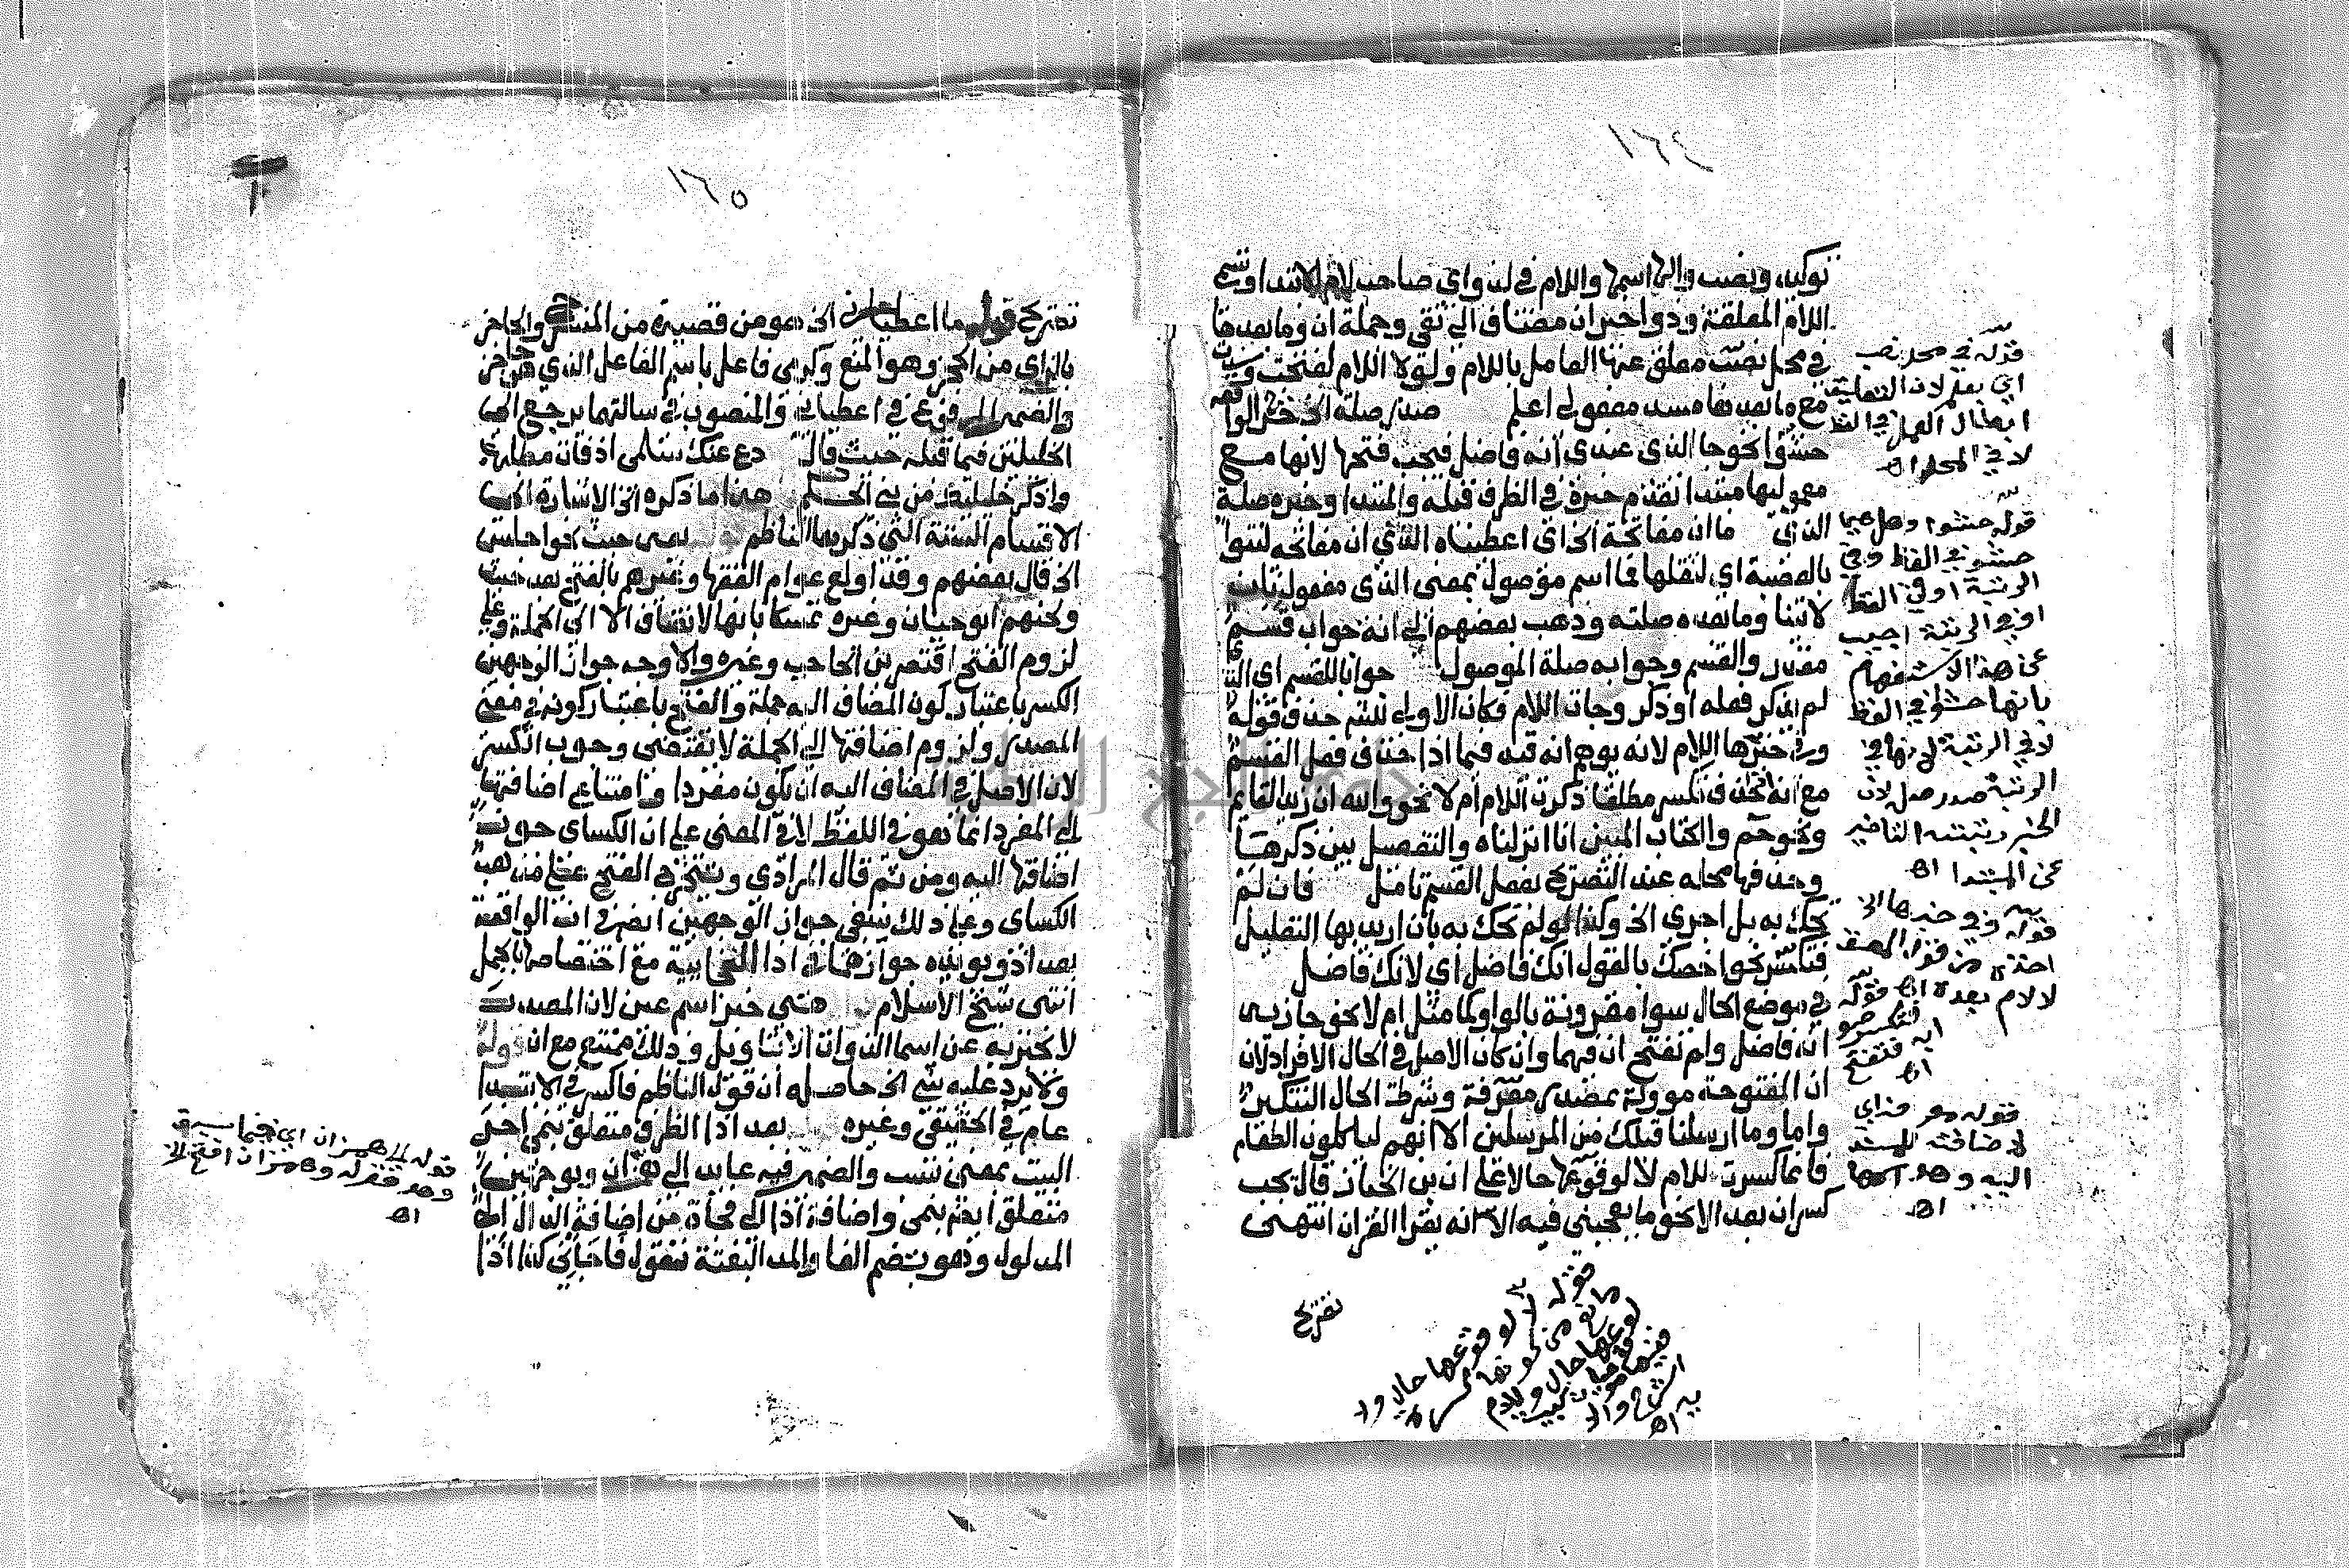 ١٦٤
توكيد ونصب والها اسمها واللام في لذو اي صاحب لام الابتداء وتسمى
اللام المعلقة وذو احبران مضاف الي تقى وجملة ان وما بعدها
في محل نصب معلق عنها العامل باللام ولولا اللام لفتحت
مع ما بعدها مسد مفعولي اعلم صدر صلة الخ خرج الواقعة
حشوا نحو جا الذي عندي انه فاضل فيجب فتحها لانها مع
معموليها مبتدا تقدم خبره في الظرف قبله والمبتدا وخبره صلة
الذي ما ان مفاتحه الخ اي اعطيناه الذي ان مفاتحه لتنوا
بالعصبة اي لتثقلها فما اسم موصول بمعنى الذي مفعول ثان
لاتينا وما بعده صلته وذهب بعضهم الي انه جواب قسم
مقدر والقسم وجوابه صلة الموصول جوابا للقسم اي
لم يذكر فعله او ذكر وجات اللام فكان الاولي للش حذف قوله
وفي خبرها اللام لانه يوهم انه قيد فيما اذا حذف فعل القسم
مع انه تكسر مطلقا ذكرت اللام ام لا نحو والله ان زيد القايم
ونحو حم والكتاب المبين انا انزلناه والتفصيل بين ذكرها
وحذفها محله عند التصريح بفعل القسم تامل فان لم
تحك به بل اجري الخ وكذا لو لم تحك به بان اريد بها التعليل
فتكسر نحو اخصك بالقول انك فاضل اي لانك فاضل
في موضع الحال سوا مقرونة بالواو كما مثل ام لا نحو جا زيد
انه فاضل ولم تفتح ان فيها وان كان الاصل في الحال الافراد لان
ان المفتوحة موولة بمصدر معرفة وشرط الحال التنكير
واما وما ارسلنا قبلك من المرسلين الا انهم لياكلون الطعام
فانما كسرت للام لا لوقوعها حالا علي ان بن الخباز قال تجب
كسر ان بعد الا نحو ما يعجبني فيه الا انه يقرا القران انتهى
تصريح
قوله في محل نصب
اي بعلم لان التعليق
ابطال العمل في اللفظ
لا في المحل اه
قوله حشوا وهل هي
حشو في اللفظ وفي
الرتبة او في اللفظ
او في الرتبة اجيب
عن هذا الاستفهام
بانها حشو في اللفظ
لا في الرتبة لانها في
الرتبة صدر صل لان
الخبر رتبته التاخير
عن المبتدا اه
قوله وفي خبرها الخ
احترز من قول المصنف
لا لام بعده اه قوله
فتكسر
فتفتح
اه
لاضافته للمسند
اليه
اه
قوله لا لوقوعها حالا
اه
١٦٥
تصريح قوله ما اعطياني الخ هو من قصيدة من المنسرح والحاجز
بالزاي من الحجز وهو المنع وكرمي فاعل باسم الفاعل الذي هو حاجز
والضمير المرفوع في اعطياني والمنصوب في سالتهما يرجع الي
الخليلين فيما قبله حيث قال دع عنك سلمى اذ فات مطلبها
واذكر خليليك من بني الحكم هذا ما ذكره الخ الاشارة الي
الاقسام الستة التي ذكرها الناظم بعد حيث نحو اجلس
الخ قال بعضهم وقد اولع عوام الفقها وغيرهم بالفتح بعد حيث
ولحنهم ابو حيان وغيره تمسكا بانها لا تضاف الا الي الجملة وعلي
لزوم الفتح اقتصر بن الحاجب وغيره والاوجه جواز الوجهين
الكسر باعتبار كون المضاف اليه جملة والفتح باعتبار كونه في معنى
المصدر ولزوم اضافتها الي الجملة لا تقتضي وجوب الكسر
لان الاصل في المضاف اليه ان يكون مفردا وامتناع اضافتها
الي المفرد انما هو في اللفظ لا في المعنى علي ان الكساي جوز
اضافتها اليه ومن ثم قال المرادي ويتخرج الفتح علي مذهب
الكساي وعلي ذلك ينبغي جواز الوجهين ايضا في ان الواقعة
بعد اذ ويويده جوازهما في اذا الفجاءية مع اختصاصها بالجمل
انتهى شيخ الاسلام متى خبر اسم عين لان المصدر
لا يخبر به عن اسما الذوات الا بتاويل وذلك ممتنع مع ان
ولا يرد عليه شي الخ حاصله ان قول الناظم فاكسر في الابتدا
عام في الحقيقي وغيره بعد اذا الظرف متعلق بنمي اخر
البيت بمعنى نسب والضمير فيه عايد الي همزان وبوجهين
متعلق ايضا بنمي واضافة اذا الي فجاة من اضافة الدال الي
المدلول وهو بضم الفا والمد البغتة تقول فاجاني كذا اذا
قوله الي همز ان اي فيما سبق
وهو قوله وهمز ان افتح الخ
اه